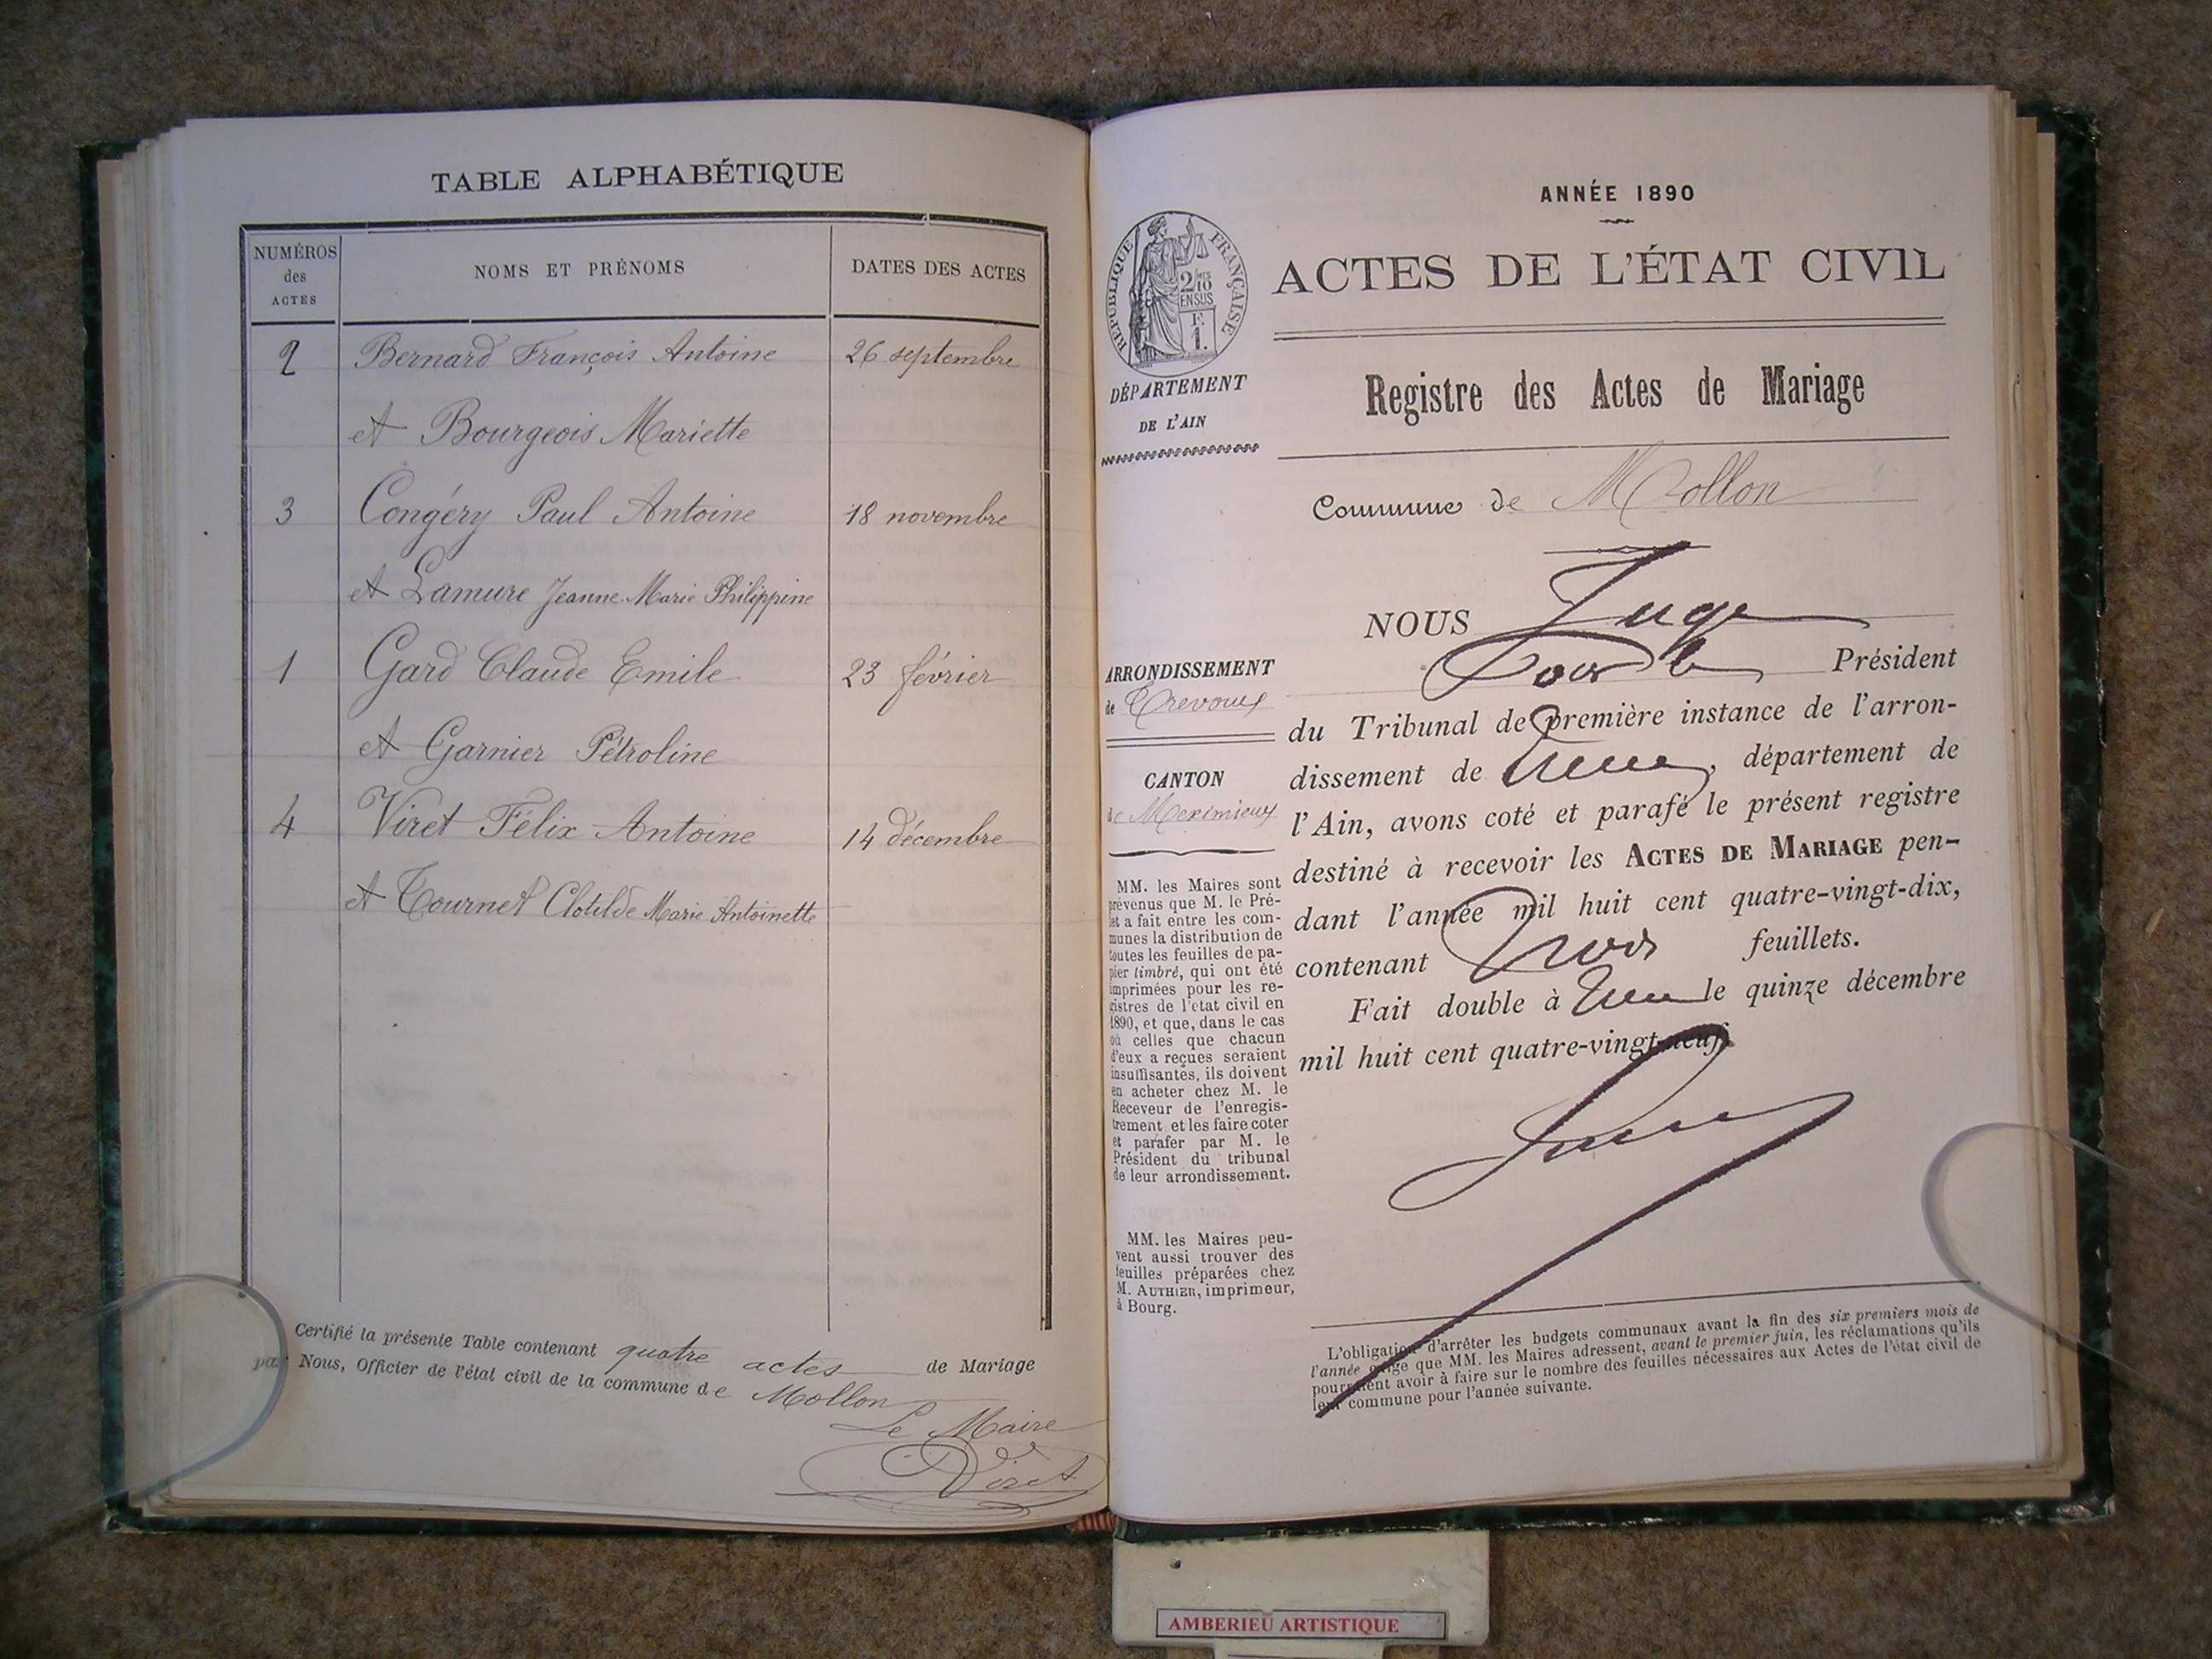 TABLE ALPHABÉTIQUE
NUMÉROS des ACTES
NOMS ET PRÉNOMS
DATES DES ACTES
2 Bernard François Antoine 26 septembre
et Bourgeois Mariette
3 Congéry Paul Antoine 18 novembre
et Lamure Jeanne Marie Philippine
1 Gard Claude Emile 23 février
et Garnier Pétroline
4 Viret Félix Antoine 14 décembre
et Tournet Clotilde Marie Antoinette
Certifié la présente Table contenant quatre actes de Mariage
par Nous, Officier de l'état civil de la commune de Mollon
Le Maire
Viret
ANNÉE 1890
RÉPUBLIQUE FRANÇAISE
2/10
EN SUS
F.
1.
ACTES DE L'ÉTAT CIVIL
DÉPARTEMENT
DE L'AIN
Registre des Actes de Mariage
Commune de Mollon
ARRONDISSEMENT
de Trevoux
CANTON
de Meximieux
MM. les Maires sont
prévenus que M. le Pré-
fet a fait entre les com-
munes la distribution de
toutes les feuilles de pa-
pier timbré, qui ont été
imprimées pour les re-
gistres de l'etat civil en
1890, et que, dans le cas
où celles que chacun
d'eux a reçues seraient
insuffisantes, ils doivent
en acheter chez M. le
Receveur de l'enregis-
trement et les faire coter
et parafer par M. le
Président du tribunal
de leur arrondissement.
MM. les Maires peu-
vent aussi trouver des
feuilles préparées chez
M. AUTHIER, imprimeur,
à Bourg.
NOUS Juge
pour le Président
du Tribunal de première instance de l'arron-
dissement de , département de
l'Ain, avons coté et parafé le présent registre
destiné à recevoir les ACTES DE MARIAGE pen-
dant l'année mil huit cent quatre-vingt-dix,
contenant trois feuillets.
Fait double à le quinze décembre
mil huit cent quatre-vingt-neuf
L'obligation d'arrêter les budgets communaux avant la fin des six premiers mois de
l'année exige que MM. les Maires adressent, avant le premier juin, les réclamations qu'ils
pourraient avoir à faire sur le nombre des feuilles nécessaires aux Actes de l'état civil de
leur commune pour l'année suivante.
AMBERIEU ARTISTIQUE